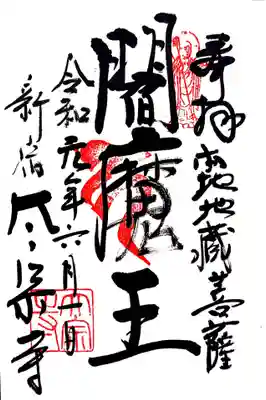 奉拝 本地地蔵菩薩
閻魔王
令和元年六月十日
新宿 太宗寺